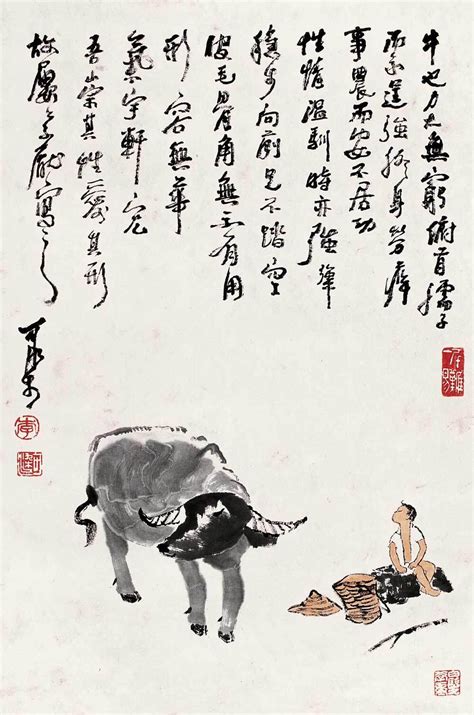 牛也力大無窮俯首孺子
而不逞強終身勞瘁
事農而安不居功
性情溫馴時亦強犟
穩步向前足不踏空
皮毛骨角無不有用
形容無華
氣宇軒宏
吾崇其性愛其形
故屢不厭寫之
可染
李
可染